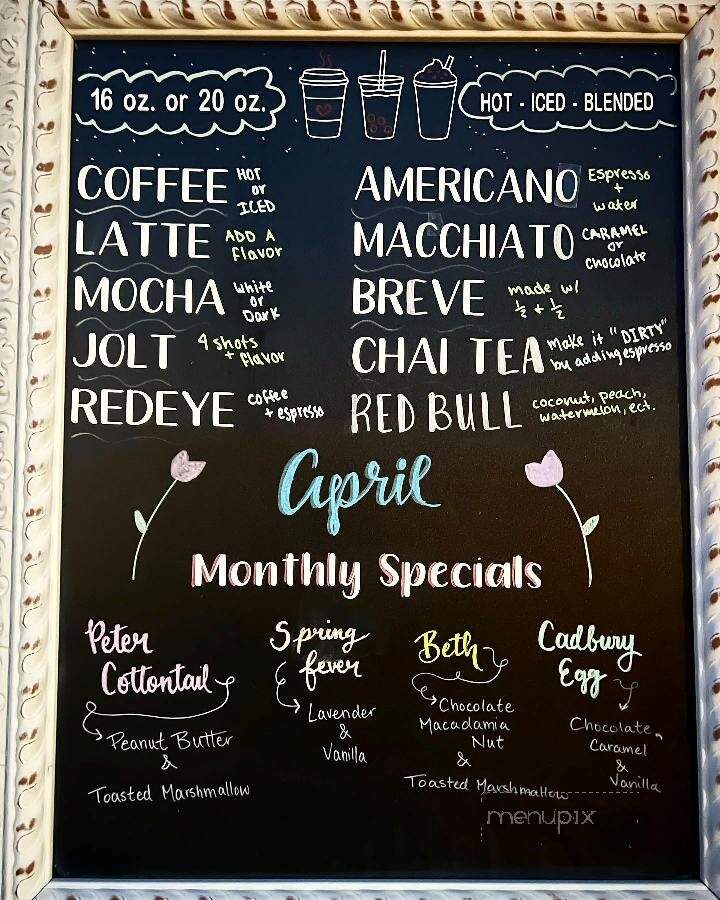 16 oz. or 20 oz.
HOT - ICED - BLENDED
COFFEE HOT or ICED
LATTE ADD A flavor
MOCHA White or Dark
JOLT 4 shots + flavor
REDEYE coffee + espresso
AMERICANO Espresso + water
MACCHIATO CARAMEL or chocolate
BREVE made w/ ½ + ½
CHAI TEA Make it "DIRTY" by adding espresso
RED BULL coconut, peach, watermelon, ect.
April
Monthly Specials
Peter
Cottontail
Peanut Butter
&
Toasted Marshmallow
Spring
fever
Lavender
&
Vanilla
Beth
Chocolate
Macadamia
Nut
&
Toasted Marshmallow
Cadbury
Egg
Chocolate,
Caramel
&
Vanilla
menupix